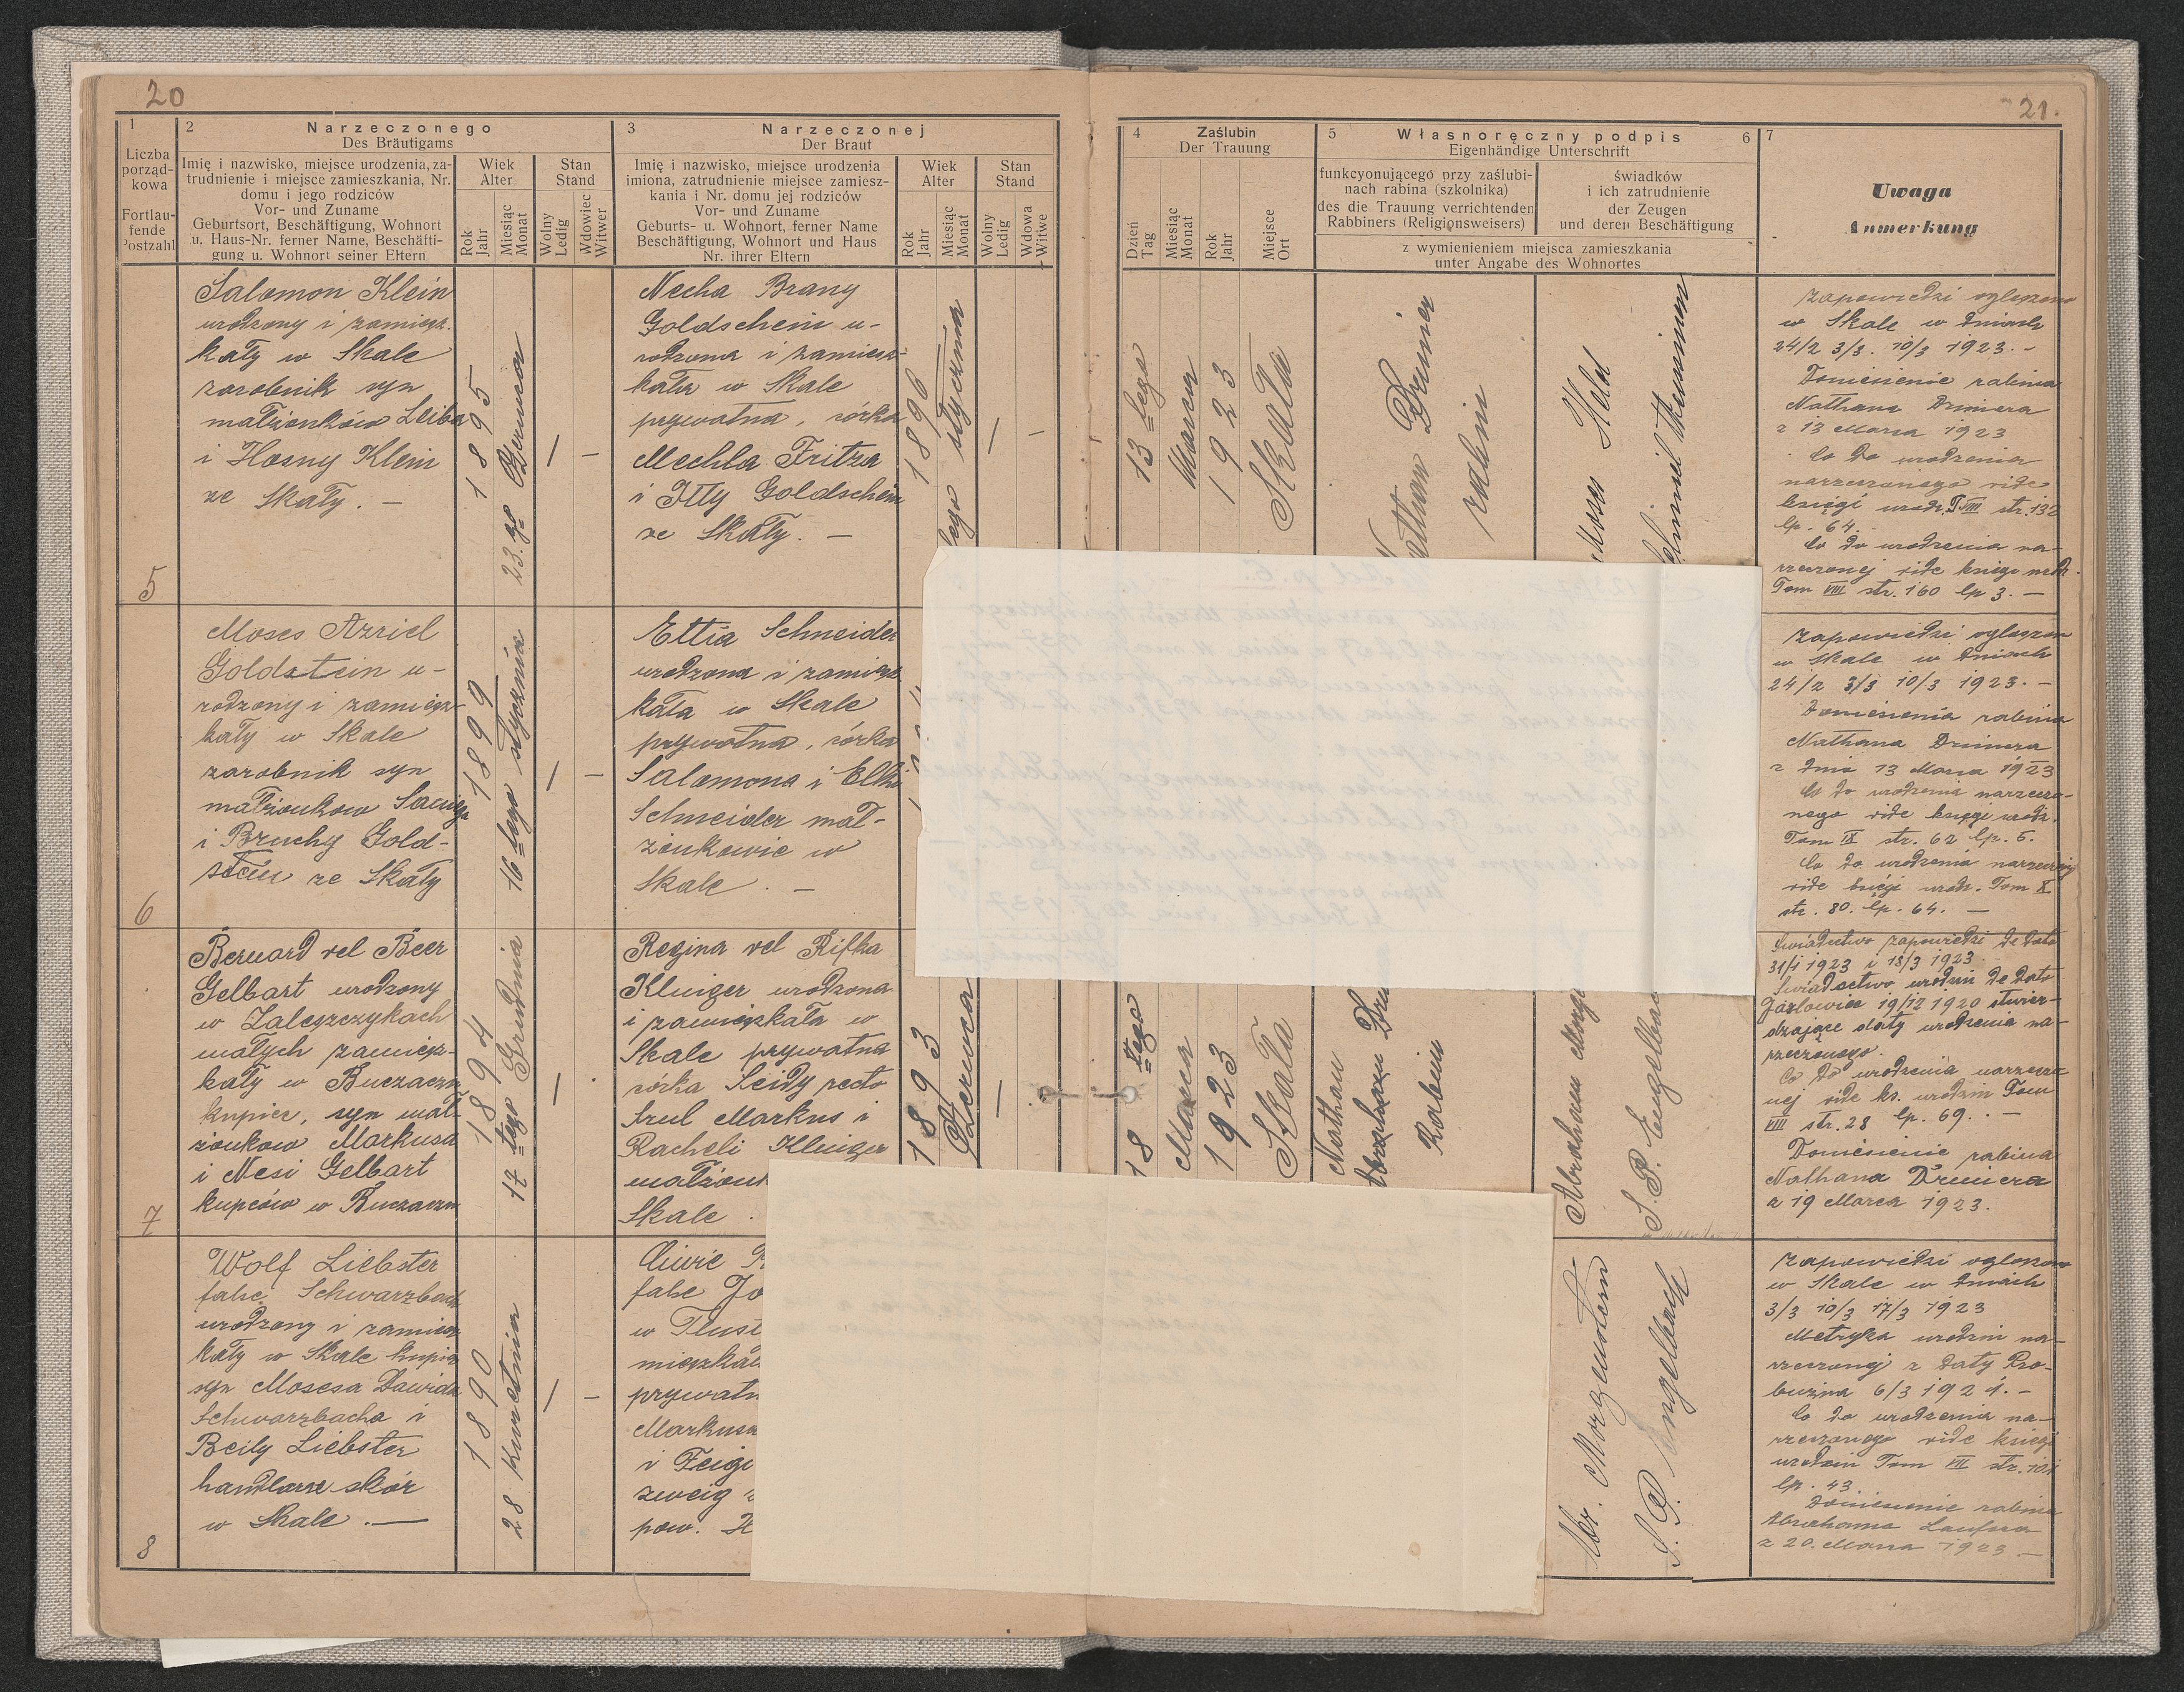 20
1
Liczba
porząd-
kowa
Fortlau-
fende
Postzahl
2
Narzeczonego
Des Bräutigams
Imię i nazwisko, miejsce urodzenia, za-
trudnienie i miejsce zamieszkania, Nr.
domu i jego rodziców
Vor- und Zuname
Geburtsort, Beschäftigung, Wohnort
u. Haus-Nr. ferner Name, Beschäfti-
gung u. Wohnort seiner Eltern
Wiek
Alter
Rok
Jahr
Miesiąc
Monat
Stan
Stand
Wolny
Ledig
Wdowiec
Witwer
3
Narzeczonej
Der Braut
Imię i nazwisko, miejsce urodzenia
imiona, zatrudnienie miejsce zamiesz-
kania i Nr. domu jej rodziców
Vor- und Zuname
Geburts- u. Wohnort, ferner Name
Beschäftigung, Wohnort und Haus
Nr. ihrer Eltern
Wiek
Alter
Rok
Jahr
Miesiąc
Monat
Stan
Stand
Wolny
Ledig
Wdowa
Witwe
5
Salomon Klein
urodzony i zamiesz.
kały w Skale
zarobnik syn
małżonków Leiba
i Hosny Klein
ze Skały. —
1895
23.go Czerwca
Necha Brany
Goldschein u-
rodzona i zamiesz-
kała w Skale
prywatna, córka
Mechla Fritza
i Itty Goldschein
ze Skały. —
1896
stycznia
6
Moses Azriel
Goldstein u-
rodzony i zamiesz-
kały w Skale
zarobnik syn
małżonkow
i Bruchy Gold-
stein ze Skały
1899
16 tego stycznia
Ettia Schneider
urodzona i zamiesz
kała w Skale
prywatna, córka
Salamona i Elki
Schneider mał-
żonkowie w
Skale. —
7
Bernard vel Beer
Gelbart urodzony
w Zaleszczykach
małych zamiesz-
kały w Buczaczu
kupiec, syn mał-
żonkow Markusa
i Nesi Gelbart
kupców w Buczaczu
1894
17 tego Grudnia
Regina vel Rifka
Kluiger urodzona
i zamieszkała w
Skale prywatna
córka Seidy recto
Srul Markus i
Racheli Kluiger
małżonk
Skale.
1893
Czerwca
8
Wolf Liebster
false Schwarzbach
urodzony i zamiesz
kały w Skale kupiec
syn Mosesa Dawida
Schwarzbacha i
Beily Liebster
handlarze skór
w Skale. —
1890
28 Kwietnia
false Jo
w Tłust
mieszkał
prywatn
Markusa
i Feigi
zweig
pow.
21.
4
Zaślubin
Der Trauung
Dzień
Tag
Miesiąc
Monat
Rok
Jahr
Miejsce
Ort
5
Własnoręczny podpis
6
Eigenhändige Unterschrift
funkcyonującego przy zaślubi-
nach rabina (szkolnika)
des die Trauung verrichtenden
Rabbiners (Religionsweisers)
świadków
i ich zatrudnienie
der Zeugen
und deren Beschäftigung
z wymienieniem miejsca zamieszkania
unter Angabe des Wohnortes
7
Uwaga
Anmerkung
13 tego
Marca
1923
Skała
Drimer
rabin
Moses Held
Zapowiedzi ogłoszono
w Skale w dniach
24/2 3/3. 10/3 1923. -
Doniesienie rabina
Nathana Drimera
z 13 Marca 1923
Co do urodzenia
narzeczonego vide
księgi urodz. T. VIII str. 132
lp. 64.
Co do urodzenia na-
rzeczonej vide księgi urodz.
Tom VIII str. 160 lp 3. —
Zapowiedzi ogłoszon
w Skale w dniach
24/2 3/3 10/3 1923. -
Doniesienia rabina
Nathana Drimera
z dnia 13 Marca 1923
Co do urodzenia narzeczo-
nego vide księgi urodz.
Tom IX str. 62 lp. 5.
Co do urodzenia narzeczonej
vide księgi urodz. Tom X
str. 80. lp. 64. —
18 tego
Marca
1923
Skała
Nathan
Rabin
Abraham
S. P. Englbac
Świadectwo zapowiedzi de dato
31/1 1923 i 18/3 1923
Świadectwo urodzin de dato
Jazłowiec 19/12 1920 stwier-
dzające daty urodzenia na-
rzeczonego.
Co do urodzenia narzeczo
nej vide ks. urodzin Tom
VIII str. 28 lp. 69. —
Doniesienie rabina
Nathana Drimera
z 19 Marca 1923.
Abr. Morgenstern
S. P. Engelbach
Zapowiedzi ogłoszono
w Skale w dniach
3/3 10/3 17/3 1923
Metryka urodzin na-
rzeczonej z daty Pro-
bużna 6/3 1921. -
Co do urodzenia na-
rzeczonego vide księgi
urodzin Tom VII str. 101
lp. 43.
Doniesienie rabina
Abrahama Laufera
z 20. Marca 1923. —